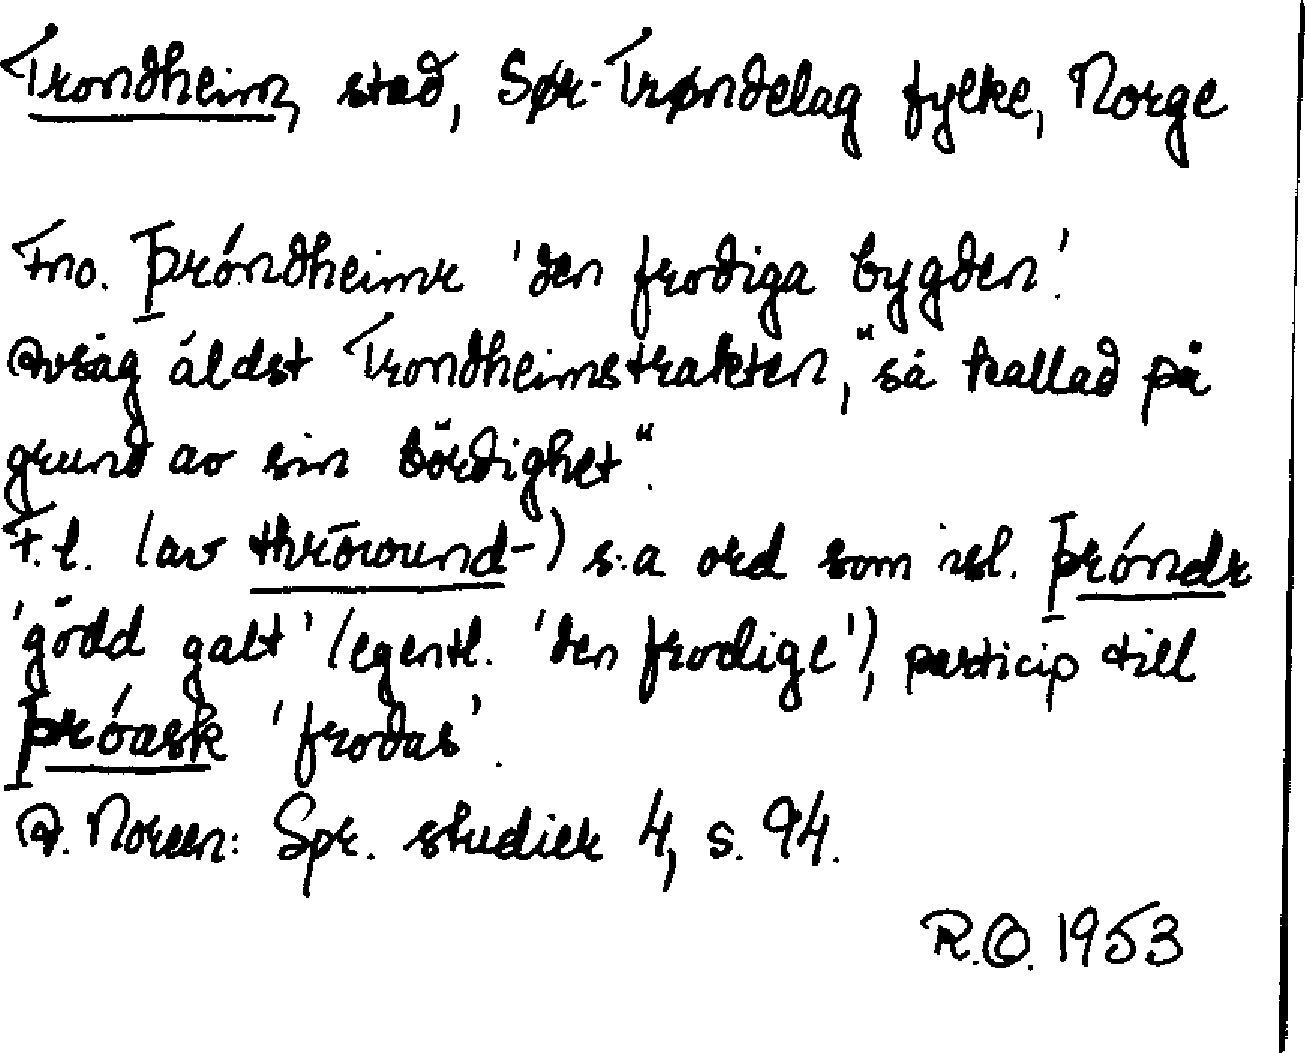 Trondheim, stad, Sør-Trøndelag fylke, Norge
Fno. Þróndheimr 'den frodiga bygden'.
Avsåg äldst Trondheimstrakten, "så kallad på
grund av sin bördighet".
F.l. (av thrōwund-) s:a ord som isl. Þróndr
'gödd galt' (egentl. 'den frodige'), particip till
Þróask 'frodas'.
A. Noreen: Spr. studier 4, s. 94.
R.O. 1953